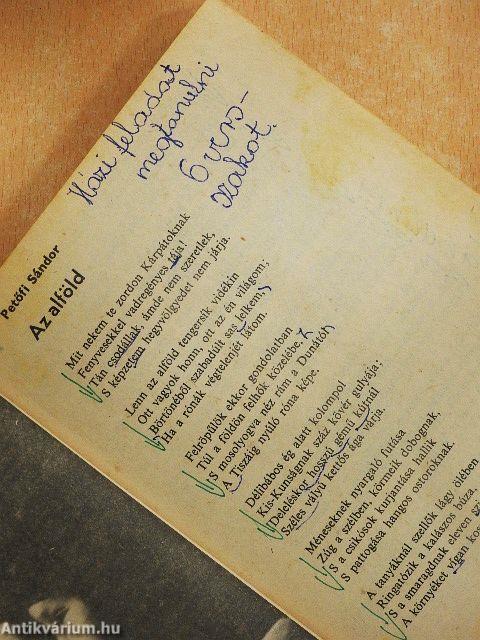 Házi feladat
megtanulni
6 vers-
szakot.
Petőfi Sándor
Az alföld
Mit nekem te zordon Kárpátoknak
Fenyvesekkel vadregényes tája!
Tán csodállak, ámde nem szeretlek,
S képzetem hegyvölgyedet nem járja.
Lenn az alföld tengersík vidékin
Ott vagyok honn, ott az én világom;
Börtönéből szabadúlt sas lelkem,
Ha a rónák végtelenjét látom.
Felröpűlök ekkor gondolatban
Túl a földön felhők közelébe,
S mosolyogva néz rám a Dunától
A Tiszáig nyúló róna képe.
Délibábos ég alatt kolompol
Kis-Kunságnak száz kövér gulyája;
Deleléskor hosszú gémű kútnál
Széles vályú kettős ága várja.
Méneseknek nyargaló futása
Zúg a szélben, körmeik dobognak,
S a csikósok kurjantása hallik
S pattogása hangos ostoroknak.
A tanyáknál szellők lágy ölében
Ringatózik a kalászos búza,
S a smaragdnak eleven szí
A környéket vígan kos
Antikvárium.hu